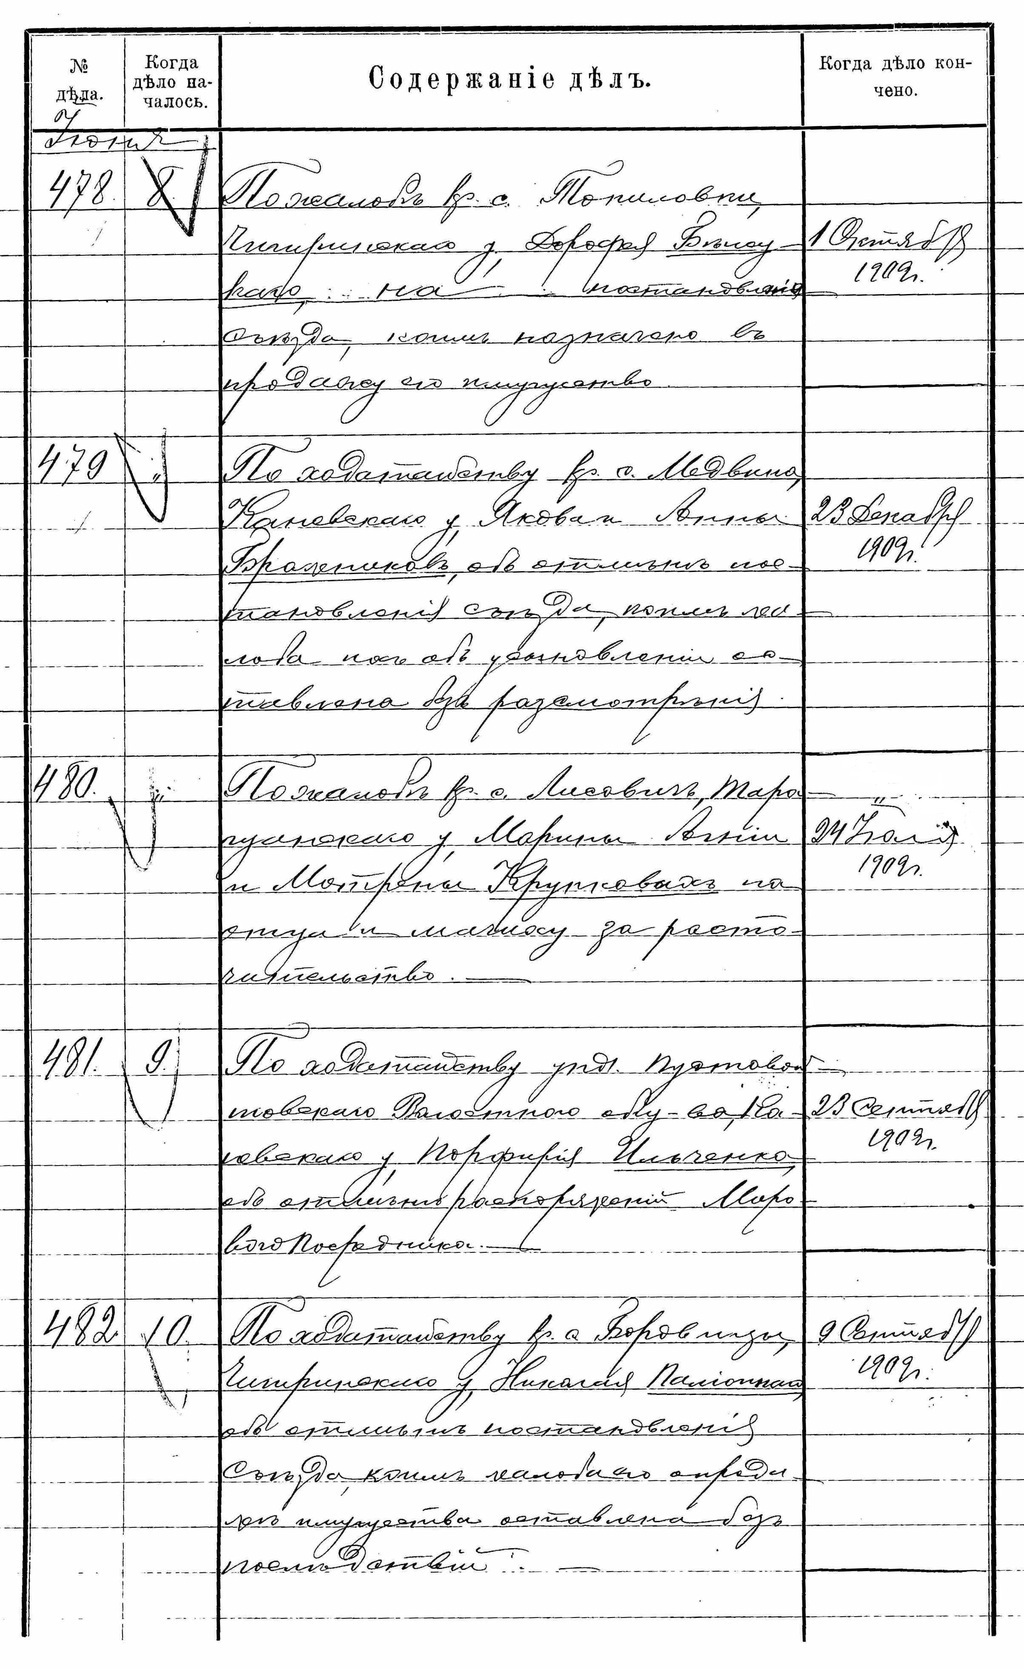 № дѣла.
Когда дѣло на-
чалось.
Содержаніе дѣлъ.
Когда дѣло кон-
чено.
Іюня
478. 8. По жалобѣ кр. с. Топиловки,
Чигиринскаго у, Дорофея Бѣлоу-
каго, на постановленіе
съѣзда, коимъ назначено въ
продажу его имущество.
1 Октября
1909г.
479 " По ходатайству кр. с. Медвина,
Каневскаго у, Якова и Анны
Бражниковъ, объ отмѣнѣ пос-
тановленія съѣзда, коимъ жа-
лоба ихъ объ усыновленіи ос-
тавлена безъ разсмотрѣнія.
23 Декабря
1909г.
480. " По жалобѣ кр. с. Лисовичъ, Тара-
щанскаго у, Марины Агніи
и Мотрены Крупковыхъ на
отца и мачиху за расто-
чительство.
"
24 Іюля
1909г.
481. 9. По ходатайству упол. Пустовой-
товскаго Волостного общ-ва, Ка-
невскаго у, Порфирія Ильченко,
объ отмѣнѣ распоряженій Миро-
вого Посредника.
23 Сентября
1909г.
482 10. По ходатайству кр. с. Боровицы,
Чигиринскаго у, Николая
объ отмѣнѣ постановленія
Съѣзда, коимъ жалоба его о раздѣ-
лѣ имущества оставлена безъ
послѣдствій.
9 Сентября
1909г.